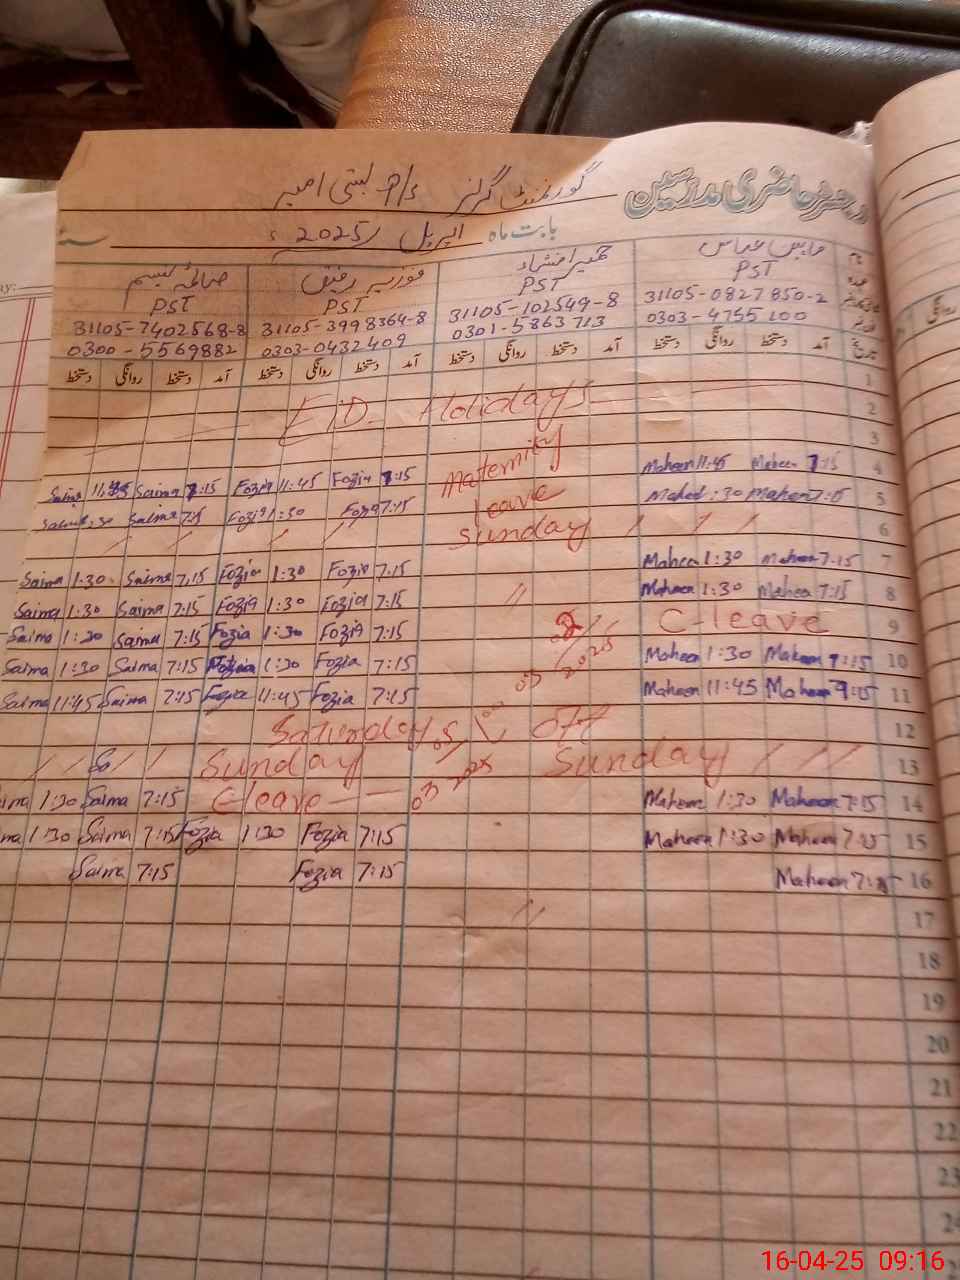 رجسٹر حاضری مدرسین
گورنمنٹ گرلز
بابت ماہ اپریل 2025ء
نام ماہین عباس حمیرا فوزیہ رفیق صائمہ
عہدہ PST PST PST PST
31105-0827850-2 31105-102549-8 31105-3998364-8 31105-7402568-8
0303-4755100 0301-5863713 0303-0432409 0300-5569882
تاریخ آمد دستخط روانگی دستخط آمد دستخط روانگی دستخط آمد دستخط روانگی دستخط آمد دستخط روانگی دستخط
روانگی
1
EID Holidays
2
3
Saima 7:15 Fozia 11:45 Fozia 7:15 Maternity Maheen 11:45 Maheen 7:15 4
Saima 7:15 Fozia 1:30 Fozia 7:15 leave Maheen 7:15 5
/ / / / / / Sunday / / / 6
Saima 1:30 Saima 7:15 Fozia 1:30 Fozia 7:15 Maheen 1:30 Maheen 7:15 7
Saima 1:30 Saima 7:15 Fozia 1:30 Fozia 7:15 // Maheen 1:30 Maheen 7:15 8
Saima 1:30 Saima 7:15 Fozia 1:30 Fozia 7:15 C-leave 9
Saima 1:30 Saima 7:15 Fozia 1:30 Fozia 7:15 03 2025 Maheen 1:30 Maheen 7:15 10
Saima 11:45 Saima 7:15 Fozia 11:45 Fozia 7:15 Maheen 11:45 Maheen 7:15 11
Saturday off 12
/ / Sa / / Sunday 03 2025 Sunday / / / 13
ima 1:30 Saima 7:15 C-leave Maheen 1:30 Maheen 7:15 14
ma 1:30 Saima 7:15 Fozia 1:30 Fozia 7:15 Maheen 1:30 Maheen 7:15 15
Saima 7:15 Fozia 7:15 Maheen 7:15 16
// 17
18
19
20
21
22
23
24
16-04-25 09:16